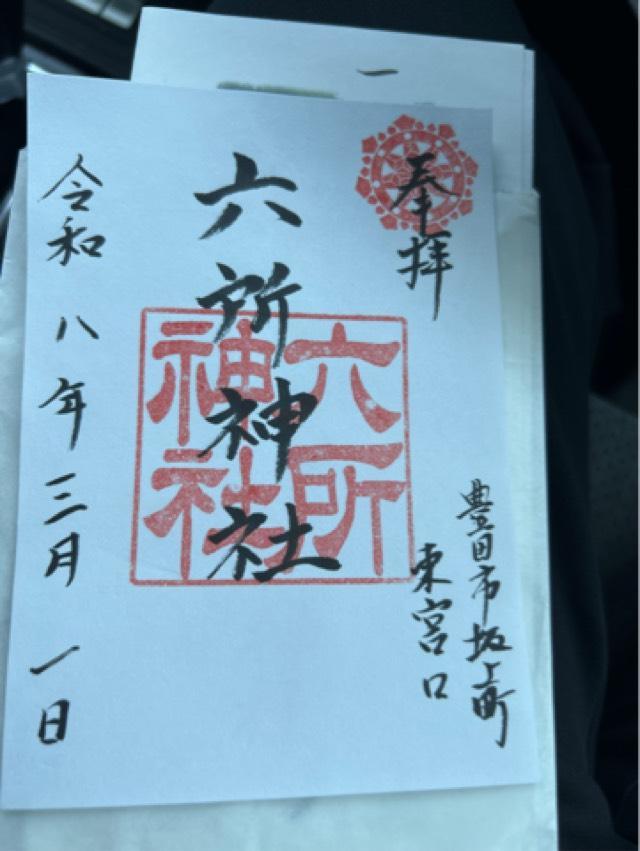 奉拝
豊田市坂上町
東宮口
六所神社
六所神社
令和八年三月一日
一